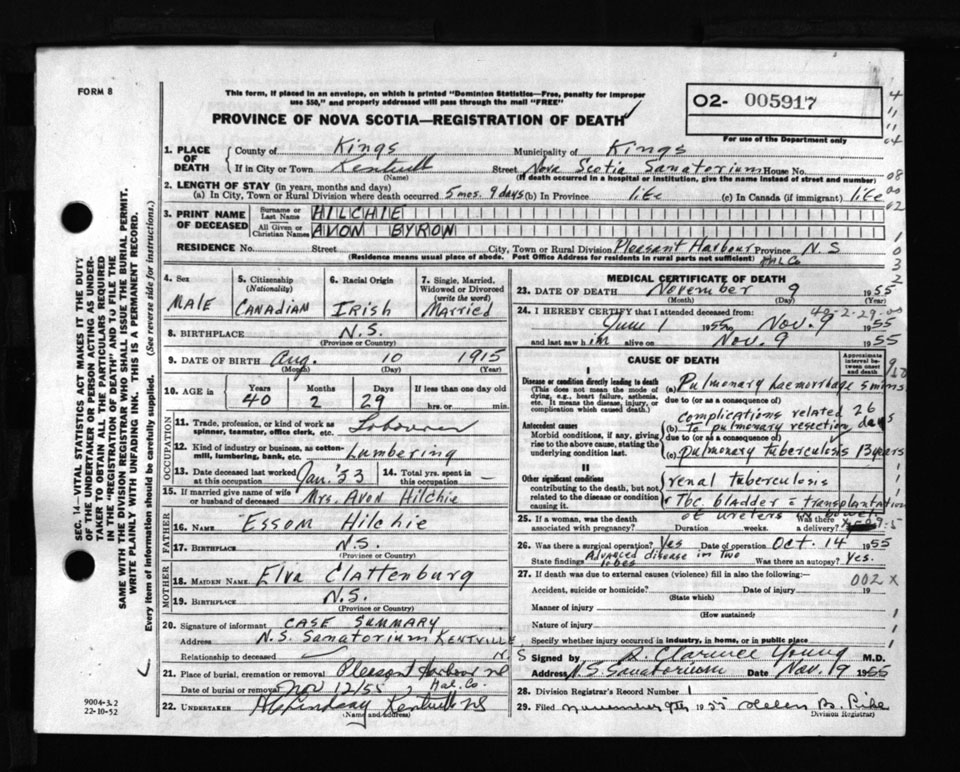 FORM 8
This form, if placed in an envelope, on which is printed "Dominion Statistics—Free, penalty for improper
use $50," and properly addressed will pass through the mail "FREE"
PROVINCE OF NOVA SCOTIA—REGISTRATION OF DEATH
O2- 005917
For use of the Department only
1. PLACE OF DEATH { County of Kings Municipality of Kings
If in City or Town Kentville Street Nova Scotia Sanatorium House No.
(Name) (If death occurred in a hospital or institution, give the name instead of street and number)
2. LENGTH OF STAY (in years, months and days)
(a) In City, Town or Rural Division where death occurred 5 mos. 9 days (b) In Province life (c) In Canada (if immigrant) life
3. PRINT NAME OF DECEASED { Surname or Last Name HILCHIE
All Given or Christian Names AVON BYRON
RESIDENCE No. Street City, Town or Rural Division Pleasant Harbour Province N.S
(Residence means usual place of abode. Post Office Address for residents in rural parts not sufficient) HAL Co
4. Sex MALE
5. Citizenship (Nationality) CANADIAN
6. Racial Origin IRISH
7. Single, Married, Widowed or Divorced (write the word) MARRIED
8. BIRTHPLACE N.S.
(Province or Country)
9. DATE OF BIRTH Aug. 10 1915
(Month) (Day) (Year)
10. AGE in Years 40 Months 2 Days 29 If less than one day old hrs. or min.
OCCUPATION
11. Trade, profession, or kind of work as spinner, teamster, office clerk, etc. Labourer
12. Kind of industry or business, as cotton-mill, lumbering, bank, etc. Lumbering
13. Date deceased last worked at this occupation Jan. '53 14. Total yrs. spent in this occupation —
15. If married give name of wife or husband of deceased Mrs. Avon Hilchie
FATHER
16. NAME Essom Hilchie
17. BIRTHPLACE N.S.
(Province or Country)
MOTHER
18. MAIDEN NAME Elva Clattenburg
19. BIRTHPLACE N.S.
(Province or Country)
20. Signature of informant CASE SUMMARY
Address N.S. Sanatorium KENTVILLE
Relationship to deceased N.
21. Place of burial, cremation or removal Pleasant Harbour
Date of burial or removal Nov 12/55 Hal. Co.
22. UNDERTAKER Kentville NS
(Name and address)
MEDICAL CERTIFICATE OF DEATH
23. DATE OF DEATH November 9 1955
(Month) (Day) (Year)
24. I HEREBY CERTIFY that I attended deceased from: 40-2-29-00
June 1 1955 to Nov. 9 1955
and last saw him alive on Nov. 9 1955
CAUSE OF DEATH
Approximate interval between onset and death
I
Disease or condition directly leading to death (This does not mean the mode of dying, e.g., heart failure, asthenia, etc. It means the disease, injury, or complication which caused death.)
(a) Pulmonary haemorrhage 5 mins
due to (or as a consequence of)
Antecedent causes
Morbid conditions, if any, giving rise to the above cause, stating the underlying condition last.
(b) complications related to pulmonary resection 26 days
due to (or as a consequence of)
(c) pulmonary tuberculosis 13 years
II
Other significant conditions contributing to the death, but not related to the disease or condition causing it.
renal tuberculosis
Tbc. bladder = transplantation
of ureters in bowel
25. If a woman, was the death associated with pregnancy? Duration weeks. Was there a delivery?
26. Was there a surgical operation? Yes Date of operation Oct. 14 1955
State findings Advanced disease in two lobes Was there an autopsy? Yes.
27. If death was due to external causes (violence) fill in also the following:— 002 X
Accident, suicide or homicide? Date of injury 19
(State which)
Manner of injury
(How sustained)
Nature of injury
Specify whether injury occurred in industry, in home, or in public place
Signed by Clarence Young M.D.
Address N.S. Sanatorium Date Nov. 19 1955
28. Division Registrar's Record Number 1
29. Filed November 9th 1955 Helen B. Pike
Division Registrar
SEC. 14—VITAL STATISTICS ACT MAKES IT THE DUTY
OF THE UNDERTAKER OR PERSON ACTING AS UNDER-
TAKER TO OBTAIN ALL THE PARTICULARS REQUIRED
IN THE "REGISTRATION OF DEATH" AND TO FILE THE
SAME WITH THE DIVISION REGISTRAR WHO SHALL ISSUE THE BURIAL PERMIT.
WRITE PLAINLY WITH UNFADING INK. THIS IS A PERMANENT RECORD.
Every item of information should be carefully supplied. (See reverse side for instructions.)
9004-3.2
22-10-52